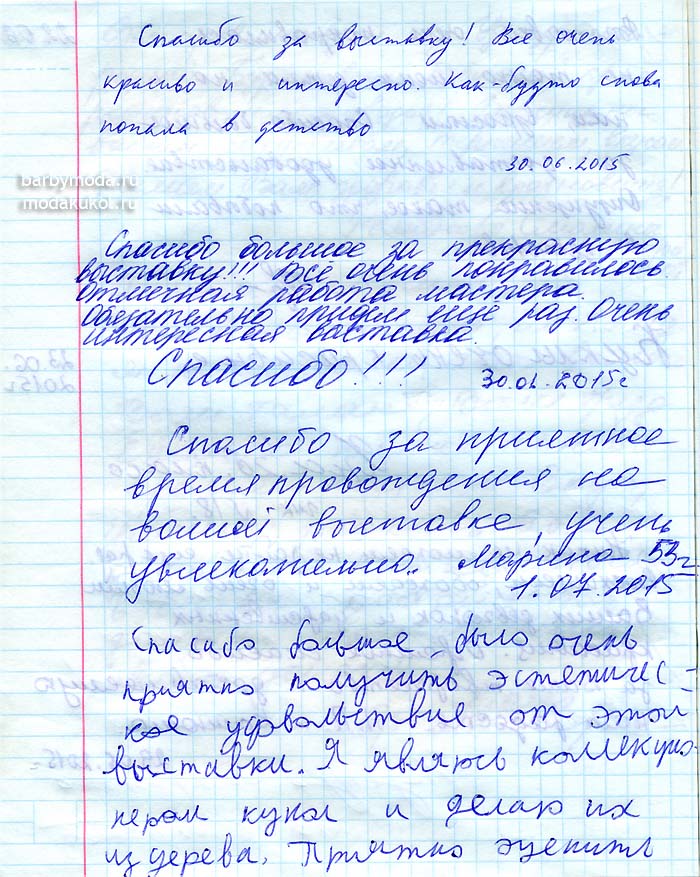 Спасибо за выставку! Все очень
красиво и интересно. Как-будто снова
попала в детство
30.06.2015
barbymoda.ru
modakukol.ru
Спасибо большое за прекрасную
выставку!!! Все очень понравилось
отличная работа мастера.
обязательно придем еще раз. Очень
интересная выставка.
Спасибо!!! 30.06.2015г
Спасибо за приятное
время провождения на
вашей выставке, учень
увлекательно. Марина 53г
1.07.2015
Спасибо большое, было очень
приятно получить эстетичес-
кое удовольствие от этой
выставки. Я являюсь коллекцио-
нером кукол и делаю их
из дерева. Приятно оценить